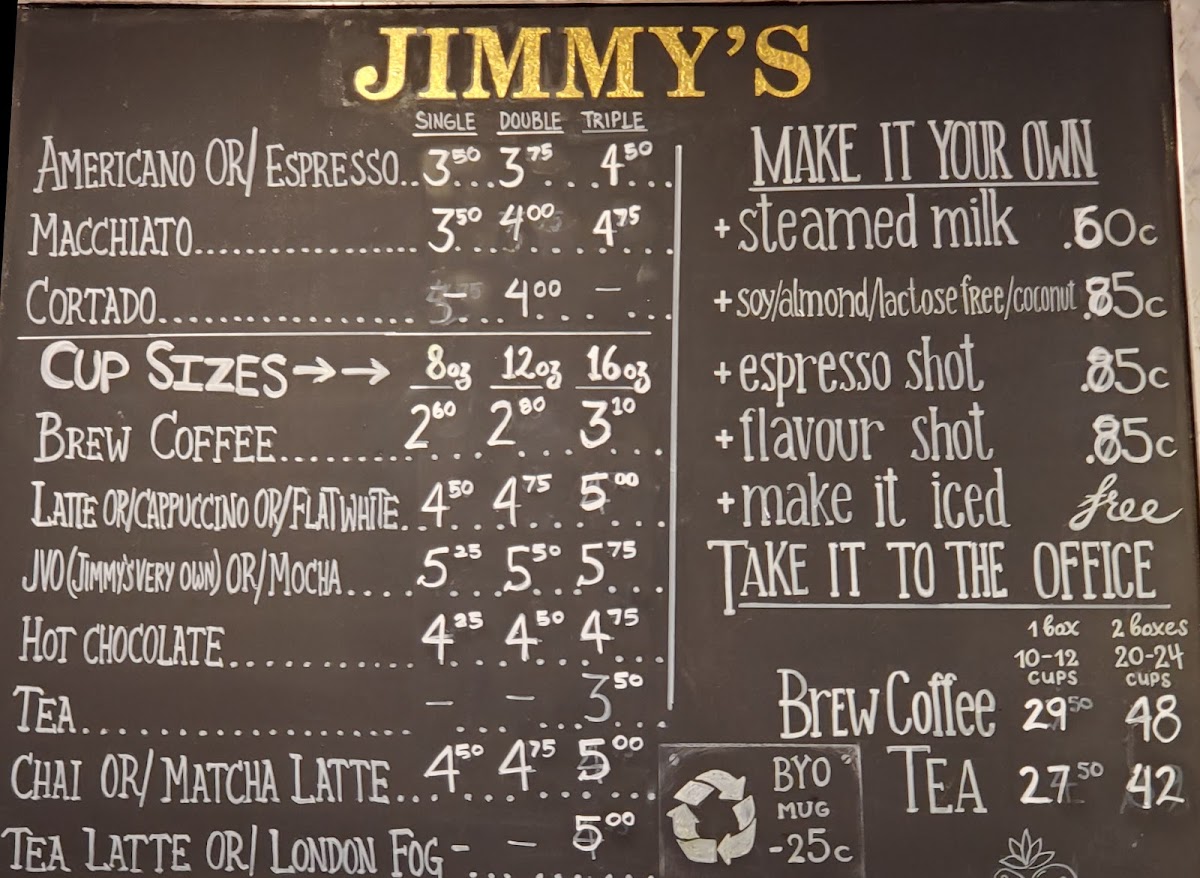 JIMMY'S
SINGLE DOUBLE TRIPLE
AMERICANO OR/ ESPRESSO..3.50...3.75...4.50...
MACCHIATO.................3.50 4.00 4.75
CORTADO.................... - 4.00 -
CUP SIZES→→ 8oz 12oz 16oz
BREW COFFEE........2.60 2.80 3.10
LATTE OR/CAPPUCCINO OR/FLAT WHITE.4.50 4.75 5.00
JVO (JIMMY'S VERY OWN) OR/MOCHA....5.25 5.50 5.75
HOT CHOCOLATE............4.25 4.50 4.75
TEA.................... - - 3.50
CHAI OR/ MATCHA LATTE...4.50 4.75 5.00
TEA LATTE OR/ LONDON FOG - - 5.00
MAKE IT YOUR OWN
+steamed milk .60c
+soy/almond/lactose free/coconut .85c
+espresso shot .85c
+flavour shot .85c
+make it iced free
TAKE IT TO THE OFFICE
1 box 2 boxes
10-12 20-24
CUPS CUPS
BREW Coffee 29.50 48
TEA 27.50 42
BYO
MUG
-25c